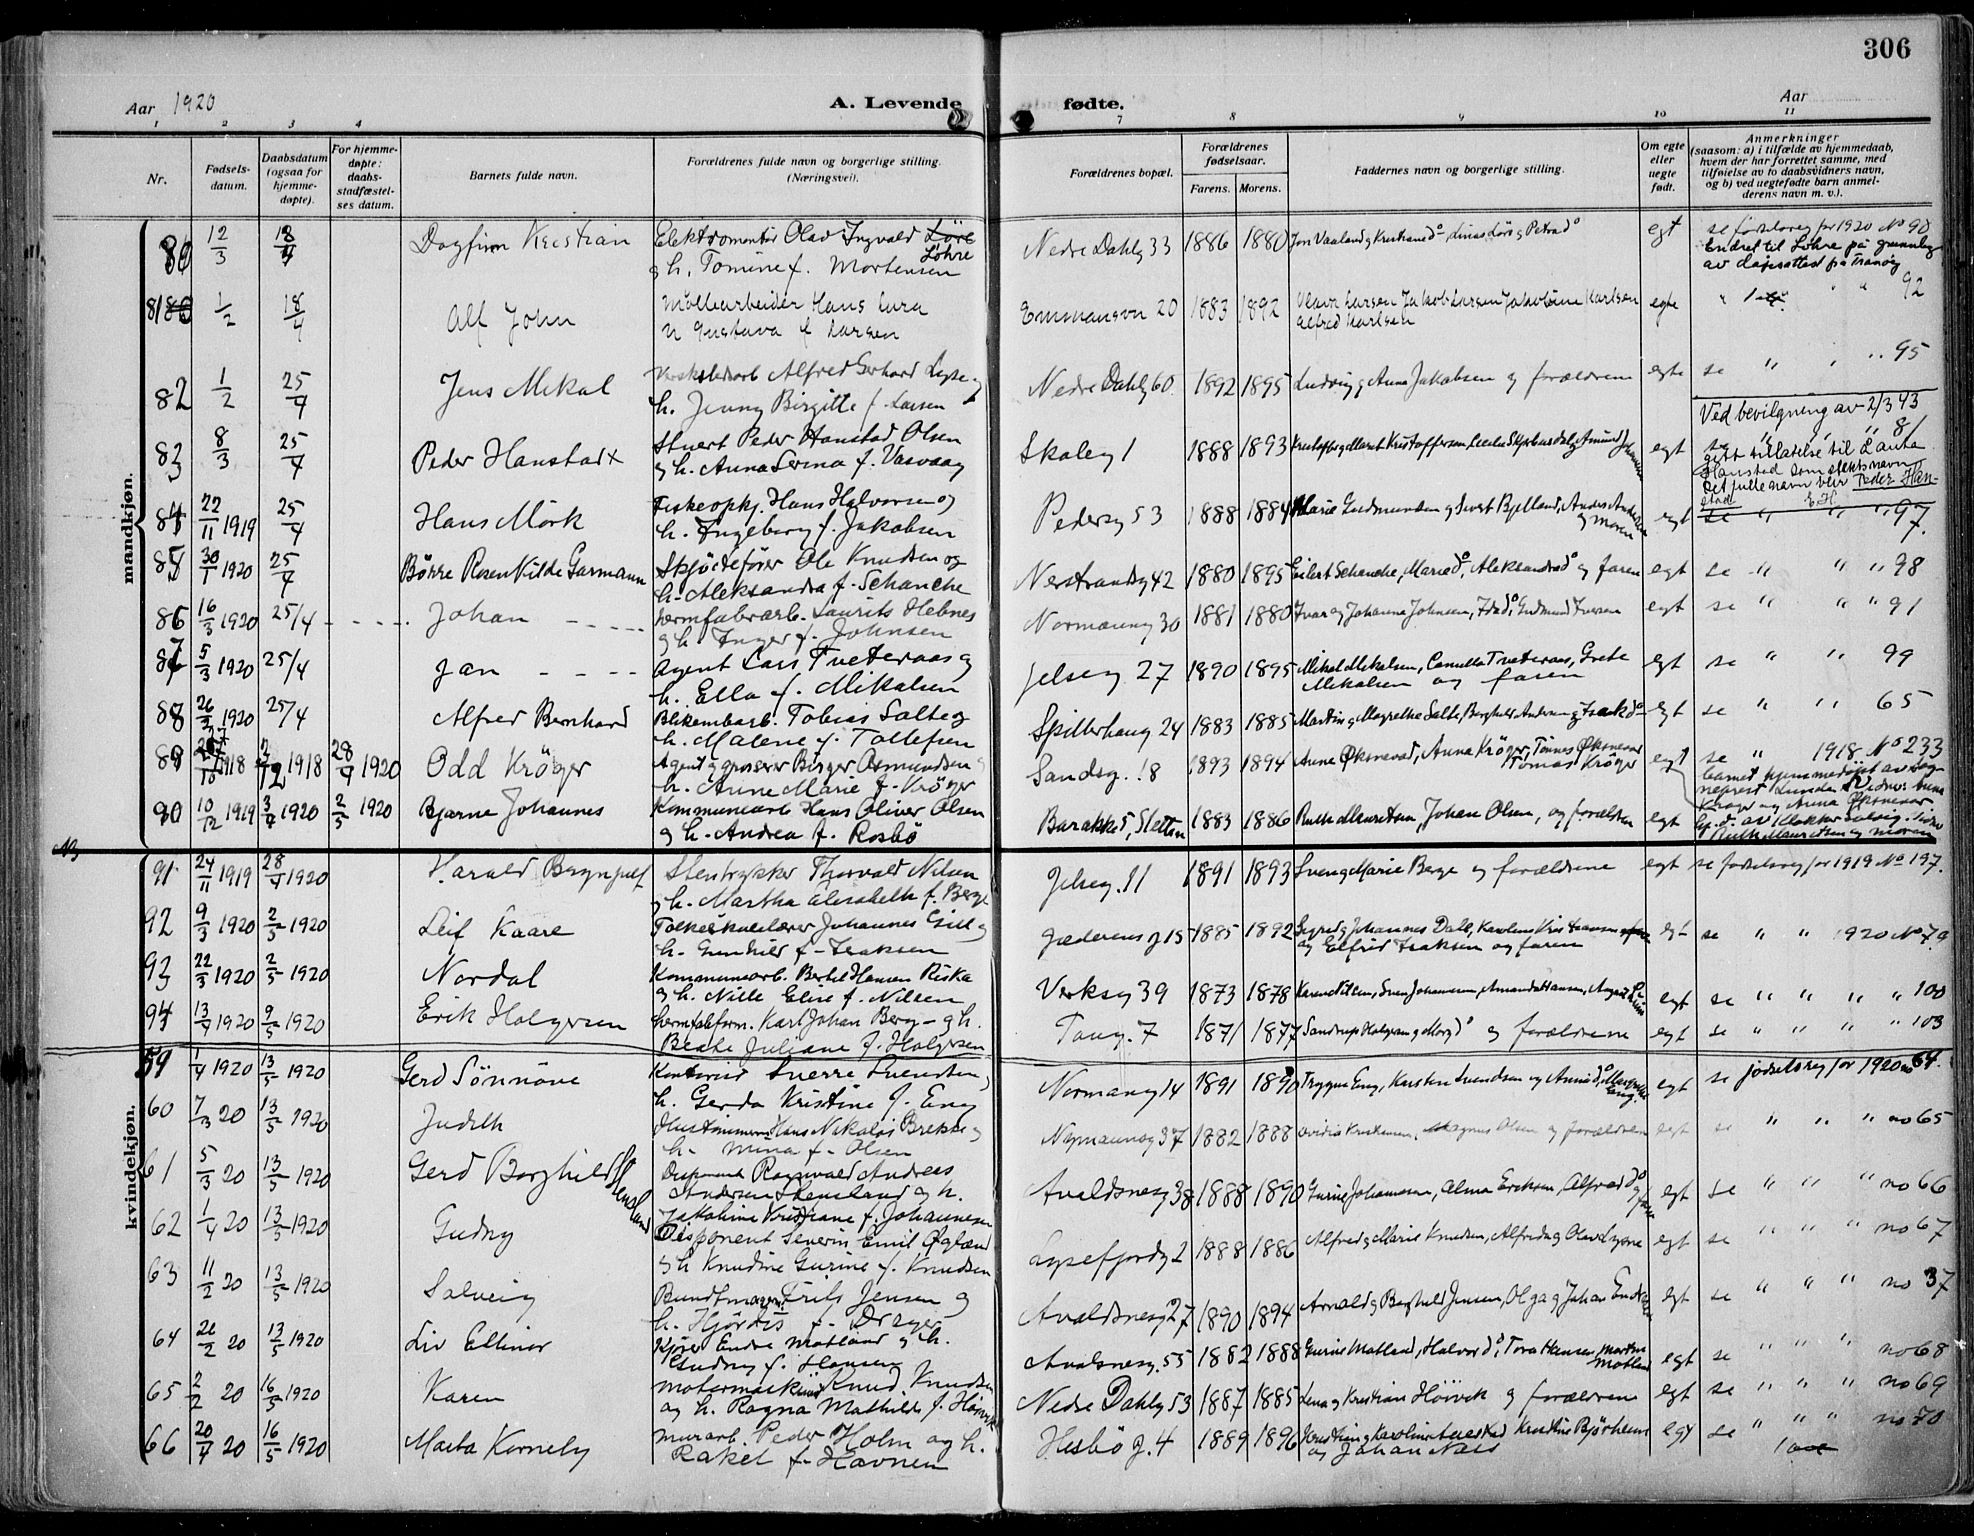 306
Aar 1920 A. Levende fødte. Aar
1 2 3 4 7 8 9 10 11
Nr.
Fødsels-
datum.
Daabsdatum
(ogsaa for
hjemme-
døpte).
For hjemme-
døpte:
daabs-
stadfæstel-
ses datum.
Barnets fulde navn.
Forældrenes fulde navn og borgerlige stilling.
(Næringsvei).
Forældrenes bopæl.
Forældrenes
fødselsaar.
Farens. Morens.
Faddernes navn og borgerlige stilling.
Om egte
eller
uegte
født.
Anmerkninger
(saasom: a) i tilfælde av hjemmedaab,
hvem der har forrettet samme, med
tilføielse av to daabsvidners navn,
og b) ved uegtefødte barn anmel-
derens navn m. v.).
mandkjøn.
80 12/3 18/4 Dagfinn Kristian Elektromontør Olav Ingvald Löre
Löhre
g h. Tomine f. Mortensen
Nedre Dahlg 33 1886 1880 egt se fødselsreg for 1920 No 90
Endret til Löhre på grunnlag
81 1/2 18/4 Alf John Møllearbeider Hans Lura
Gustava f Larsen
20 1883 1892 Jakob Larsen Karlsen
Alfred Karlsen egte " " " 92
82 1/2 25/4 Jens Mikal Alfred Gerhard
h. Jenny Birgitte f. Larsen
Nedre Dahlg 60 1892 1895 Ludvig g Anna Jakobsen g forældrene egte se " " " 95
83 8/3 25/4 Peder Hanstad x Stuert Peder Hanstad Olsen
g h. Anna Serina f. Vasvaag
Skoleg 1 1888 1893 egt
Ved bevilgning av 2/3 43
" " 81
gitt tillatelse til å anta
Hanstad som slektsnavn
Det fulle navn blir Peder Han-
stad E.H.
84 22/11 1919 25/4 Hans Mörk Fiskeopkj. Hans Halvorsen og
h. Ingeborg f. Jakobsen
Pedersg 53 1888 1884 Marie Gudmundsen g Sivert Bjelland, Anders Andersen
g moren egt se " " " 97.
85 30/1 1920 25/4 Börre Rosenkilde Garmann Skjödefører Ole Knudsen og
h. Aleksandra f. Schanche
Nerstrandsg 42 1880 1895 Eilert Schanche, Marie do, Aleksandra do g faren egt se " " " 98
86 16/3 1920 25/4 Johan Hermfabarb. Laurits Hebnes
g h. Inger f. Johnsen
Normannsg 30 1881 1880 Ivar g Johanna Johnsen, Ida do, Gudmund Iversen egt se " " " 91
87 5/3 1920 25/4 Jan Agent Lars Tveteraas g
h. Ella f. Mikalsen
Jelseg 27 1890 1895 Mikal Mikalsen, Camilla Tveteraas, Grete
Mikalsen og faren egt se " " 99
88 26/2 1920 25/4 Alfred Bernhard Blikembarb. Tobias Salte g
h. Malene f. Tollefsen
Spilderhaug 24 1883 1885 Martin g Magrethe Salte, Borghild Andersen g Isak do egt se " " 65
89 1918 1918 28/4 1920 Odd Kröger Agent g grosserer Birger Osmundsen g
h. Anne Marie f. Kröger
Sandsg. 18 1893 1894 Anne Øksnevad, Anna Kröger, Tönnes Øksnevad
Tomas Kröger egt se " 1918 No 233
Barnet hjemmedöpt av Sog-
neprest Lunde. Vidner Anna
Kröger og Anna Øksnevad
90 10/12 1919 3/4 1920 2/5 1920 Bjarne Johannes Kommunearb Hans Oliver Olsen
g h. Andrea f. Rosbö
Barakke 5, Sletten 1883 1886 Ruth Mauritsen, Johan Olsen, og forældrene egt hj. d. av Klokker Salvig. Vidn
Ruth Mauritsen g moren
91 24/11 1919 28/4 1920 Harald Brynjulf Stentrykker Thorvald Nilsen
g h. Martha Elisabeth f. Berge
Jelseg. 11 1891 1893 Sven g Marie Berge og forældrene egt se fødselsreg for 1919 No 197.
92 9/3 1920 2/5 1920 Leif Kaare Folkeskolelærer Johannes Gill g
h. Gunhild f. Isaksen
Jæderensg 15 1885 1892 Sigrid g Johannes Dale, Karoline Kristiansen
og Elfrid Isaksen og faren egt se " " 1920 No 79
93 22/3 1920 2/5 1920 Nordal Kommunearb. Bertel Hansen Riska
g h. Nille Elise f. Nilsen
Verksg 39 1873 1878 Karen Nilsen, Sven Johannesen, Amanda Hansen, August egt se " " " " 100
94 13/4 1920 9/5 1920 Erik Holgersen Hermfabform. Karl Johan Berg g h.
Beate Juliane f. Holgersen
Taug. 7 1871 1877 Sandrup Holgersen g Marg do g forældrene egt se " " " " 103
kvindekjøn.
59 1/4 1920 13/5 1920 Gerd Sönnöve Kontorist Sverre Svendsen g
h. Gerda Kristine f. Eng
Normannsg 14 1891 1890 Trygve Eng, Karsten Svendsen og Anna do, Margrethe
Eng. egt se födselsreg for 1920 no 64.
60 7/3 20 13/5 1920 Judith Hustömmerm Hans Nikolai Brekke g
h. Mina f. Olsen
Normannsg 37 1882 1888 Ovidia Kristensen, Magnus Olsen og forældrene egt se " " " no 65
61 5/3 20 13/5 1920 Gerd Borghild Stensland Disponent Ragnvald Andreas
Andersen Stensland og h.
Jakobine Kristiane f. Johannesen
Avaldsnesg 38 1888 1890 Gurine Johannesen, Alma Eriksen, Alfred do g faren egt se " " " no 66
62 1/4 20 13/5 1920 Gudny Disponent Severin Emil Øglænd
g h Knudine Gurine f. Knudsen
Lysefjordg 2 1888 1886 Alfred g Marie Knudsen, Alfred g Olava Lyse egt se " " " no 67
63 11/2 20 13/5 1920 Solveig Bundtmager Frits Jensen g
h. Hjördis f. Drager
Avaldsnesg 27 1890 1894 Arnold g Borghild Jensen, Olga g Johan egt se " " " no 37
64 20 13/5 1920 Liv Ellinor Kjører Endre Matland g h.
Gudny f. Hansen
Avaldsnesg. 55 1882 1888 Gurine Matland, Halvor do, Tora Hansen, Martin
Matland egt se " " " no 68
65 2/2 20 16/5 1920 Karen Motormaskinist Knud Knudsen
og h. Ragna Mathilde f. Höivik
Nedre Dahlg 53 1887 1885 Lena g Kristian Höivik g forældrene egt se " " " no 69
66 20/4 20 16/5 1920 Marta Korneby Murarb. Peder Holm og h.
Rakel f. Havnen
Hesbög. 4 1889 1896 Kristian g Karoline Kristine Bjørheim
og Johan Næss egt se " " " no 70